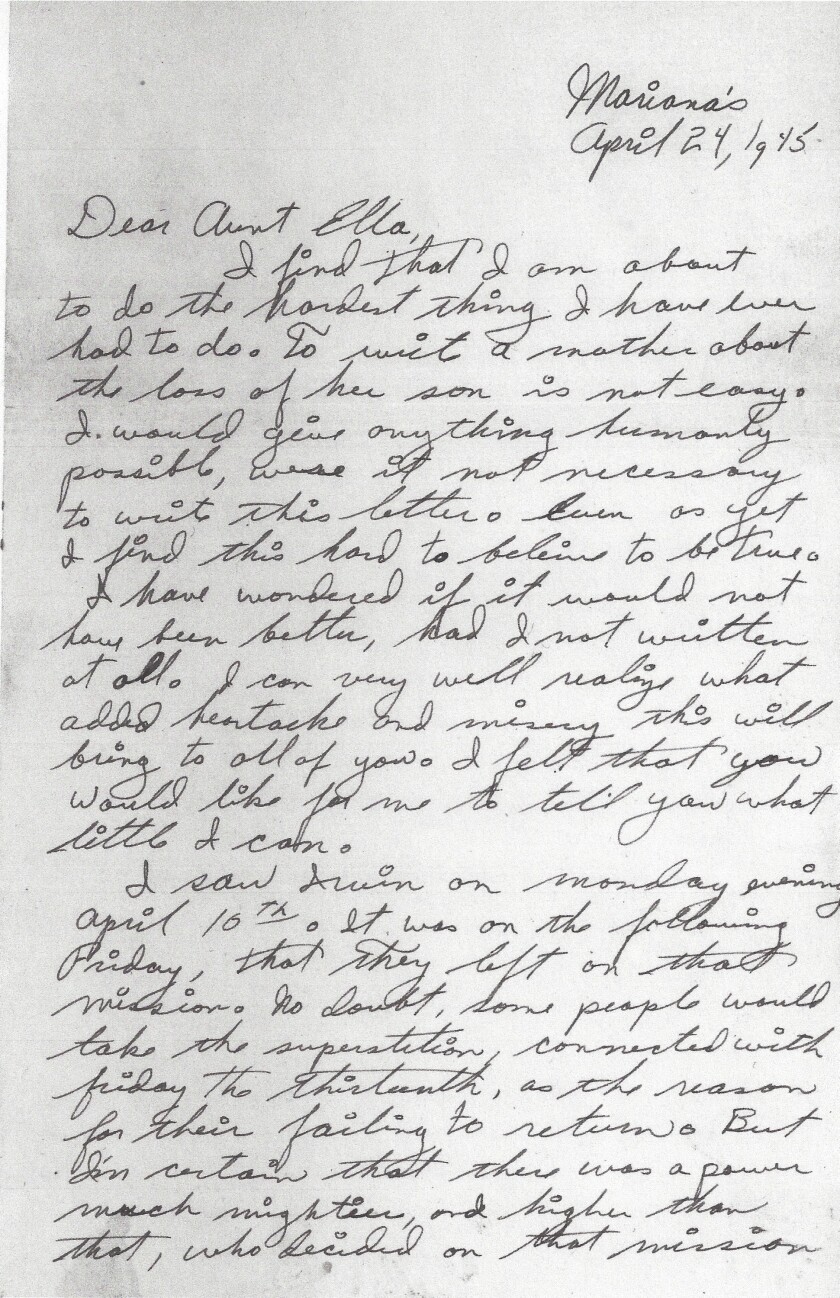 Mariana's
April 24, 1945
Dear Aunt Ella,
I find that I am about
to do the hardest thing I have ever
had to do. To write a mother about
the loss of her son is not easy.
I would give anything humanly
possible, were it not necessary
to write this letter. Even as yet
I find this hard to beleive to be true.
I have wondered if it would not
have been better, had I not written
at all. I can very well realize what
added heartache and misery this will
bring to all of you. I felt that you
would like for me to tell you what
little I can.
I saw Irwin on monday evening
April 10th. It was on the following
Friday, that they left on that
mission. No doubt, some people would
take the superstition, connected with
friday the thirteenth, as the reason
for their failing to return. But
I'm certain that there was a power
much mightier, and higher than
that, who decided on that mission